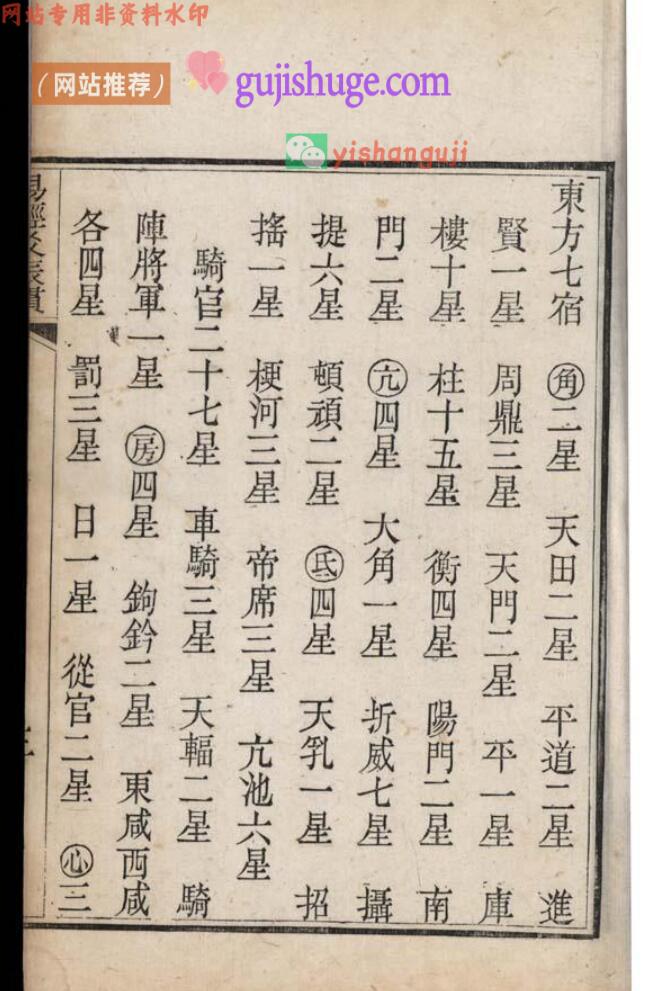 网站专用非资料水印
（网站推荐）
gujishuge.com
yishanguji
東方七宿 角二星 天田二星 平道二星 進
賢一星 周鼎三星 天門二星 平一星 庫
樓十星 柱十五星 衡四星 陽門二星 南
門二星 亢四星 大角一星 折威七星 攝
提六星 頓頑二星 氐四星 天乳一星 招
搖一星 梗河三星 帝席三星 亢池六星
騎官二十七星 車騎三星 天輻二星 騎
陣將軍一星 房四星 鉤鈐二星 東咸西咸
各四星 罰三星 日一星 從官二星 心三